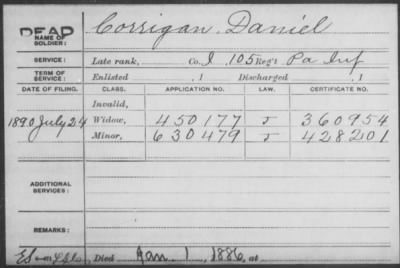 DEAD
NAME OF SOLDIER: Corrigan, Daniel
SERVICE: Late rank, Co. I 105 Reg't Pa Inf
TERM OF SERVICE: Enlisted , 1 Discharged , 1
DATE OF FILING. CLASS. APPLICATION NO. LAW. CERTIFICATE NO.
Invalid,
1890 July 24 Widow, 450177 J 360954
Minor, 630479 J 428201
ADDITIONAL SERVICES:
REMARKS:
Died Jan. 1, 1886, at